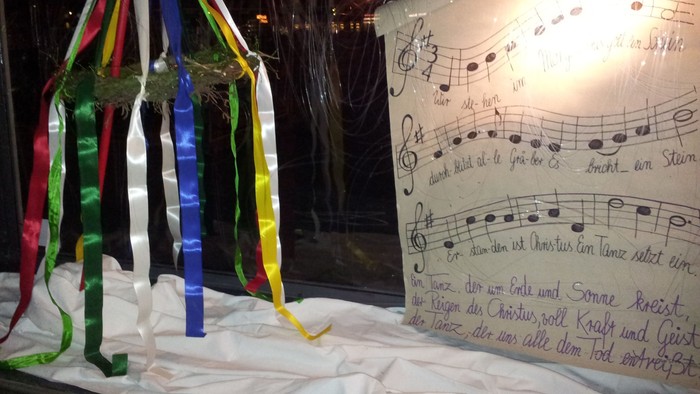 Wir ste-hen im Morg ein Schein
durch-blitzt al-le Grä-ber Es bricht_ ein Stein
Er-stan-den ist Chris-tus Ein Tanz setzt ein
Ein Tanz, der um Erde und Sonne kreist,
der Reigen des Christus, voll Kraft und Geist
der Tanz, der uns alle dem Tod entreißt.